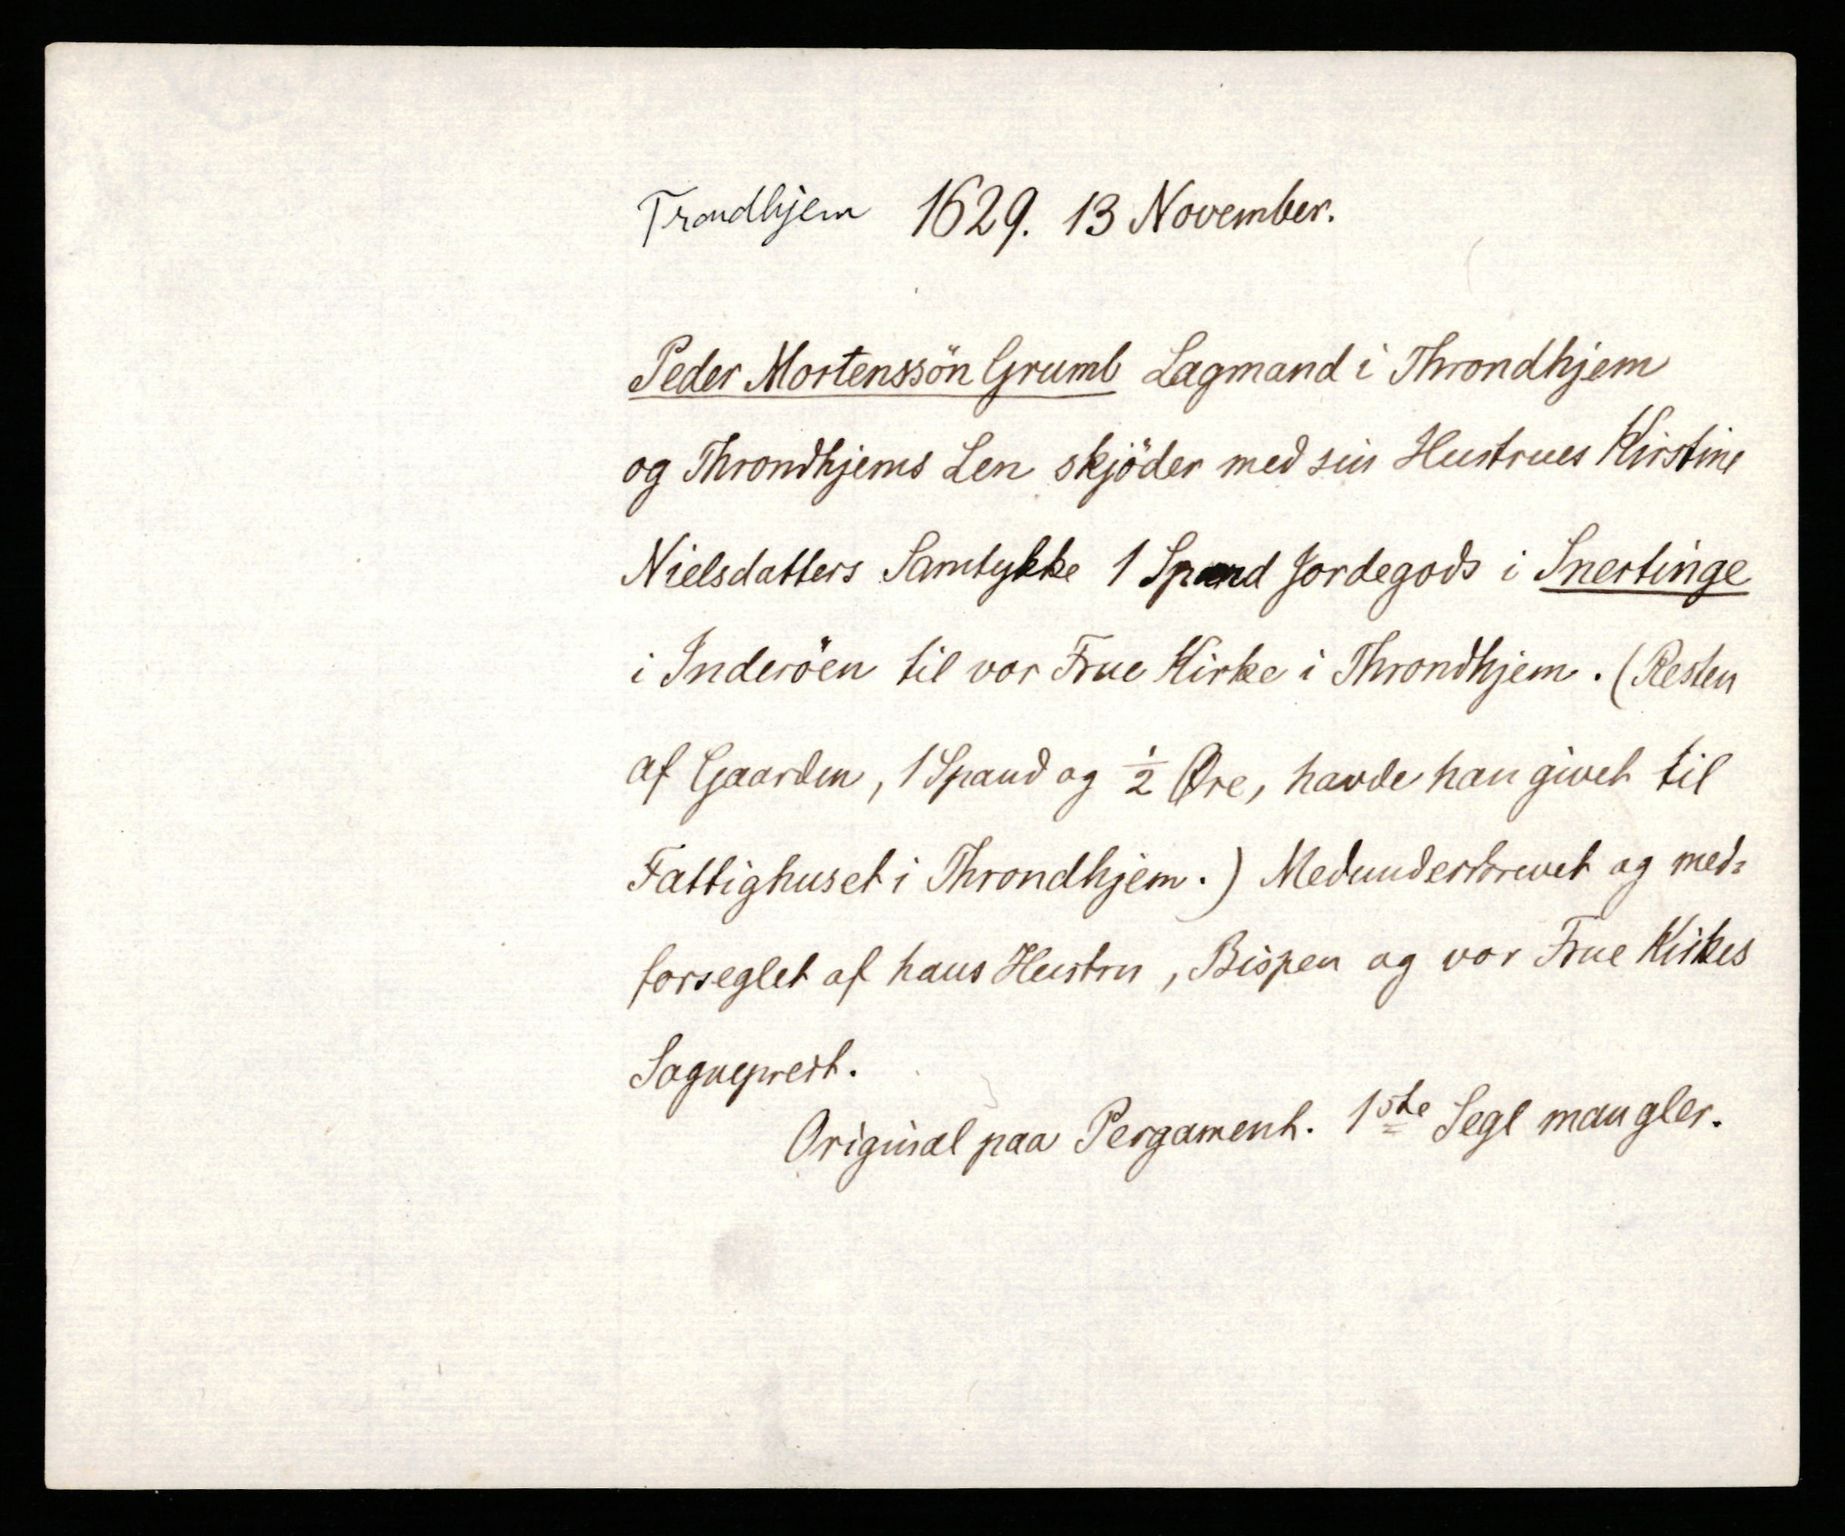 Trondhjem 1629. 13 November.
Peder Mortenssön Grumb Lagmand i Throndhjem
og Throndhjems Len skjöder med sin Hustrues Kirstine
Nielsdatters Samtykke 1 Spand Jordegods i Snertinge
i Inderöen til vor Frue Kirke i Throndhjem. (Resten
af Gaarden, 1 Spand og ½ Øre, havde han givet til
Fattighuset i Throndhjem.) Medunderskrevet og med=
forseglet af hans Hustru, Bispen og vor Frue Kirkes
Sogneprest.
Original paa Pergament. 1ste Segl mangler.